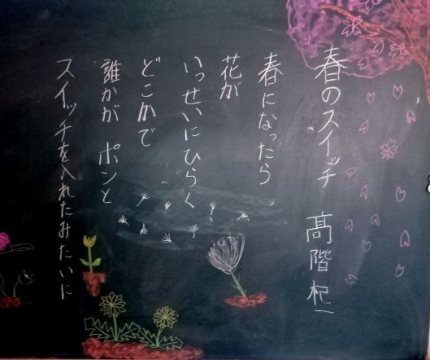 春のスイッチ 高階杞一
春になったら
花が
いっせいにひらく
どこかで
誰かが ポンと
スイッチを入れたみたいに